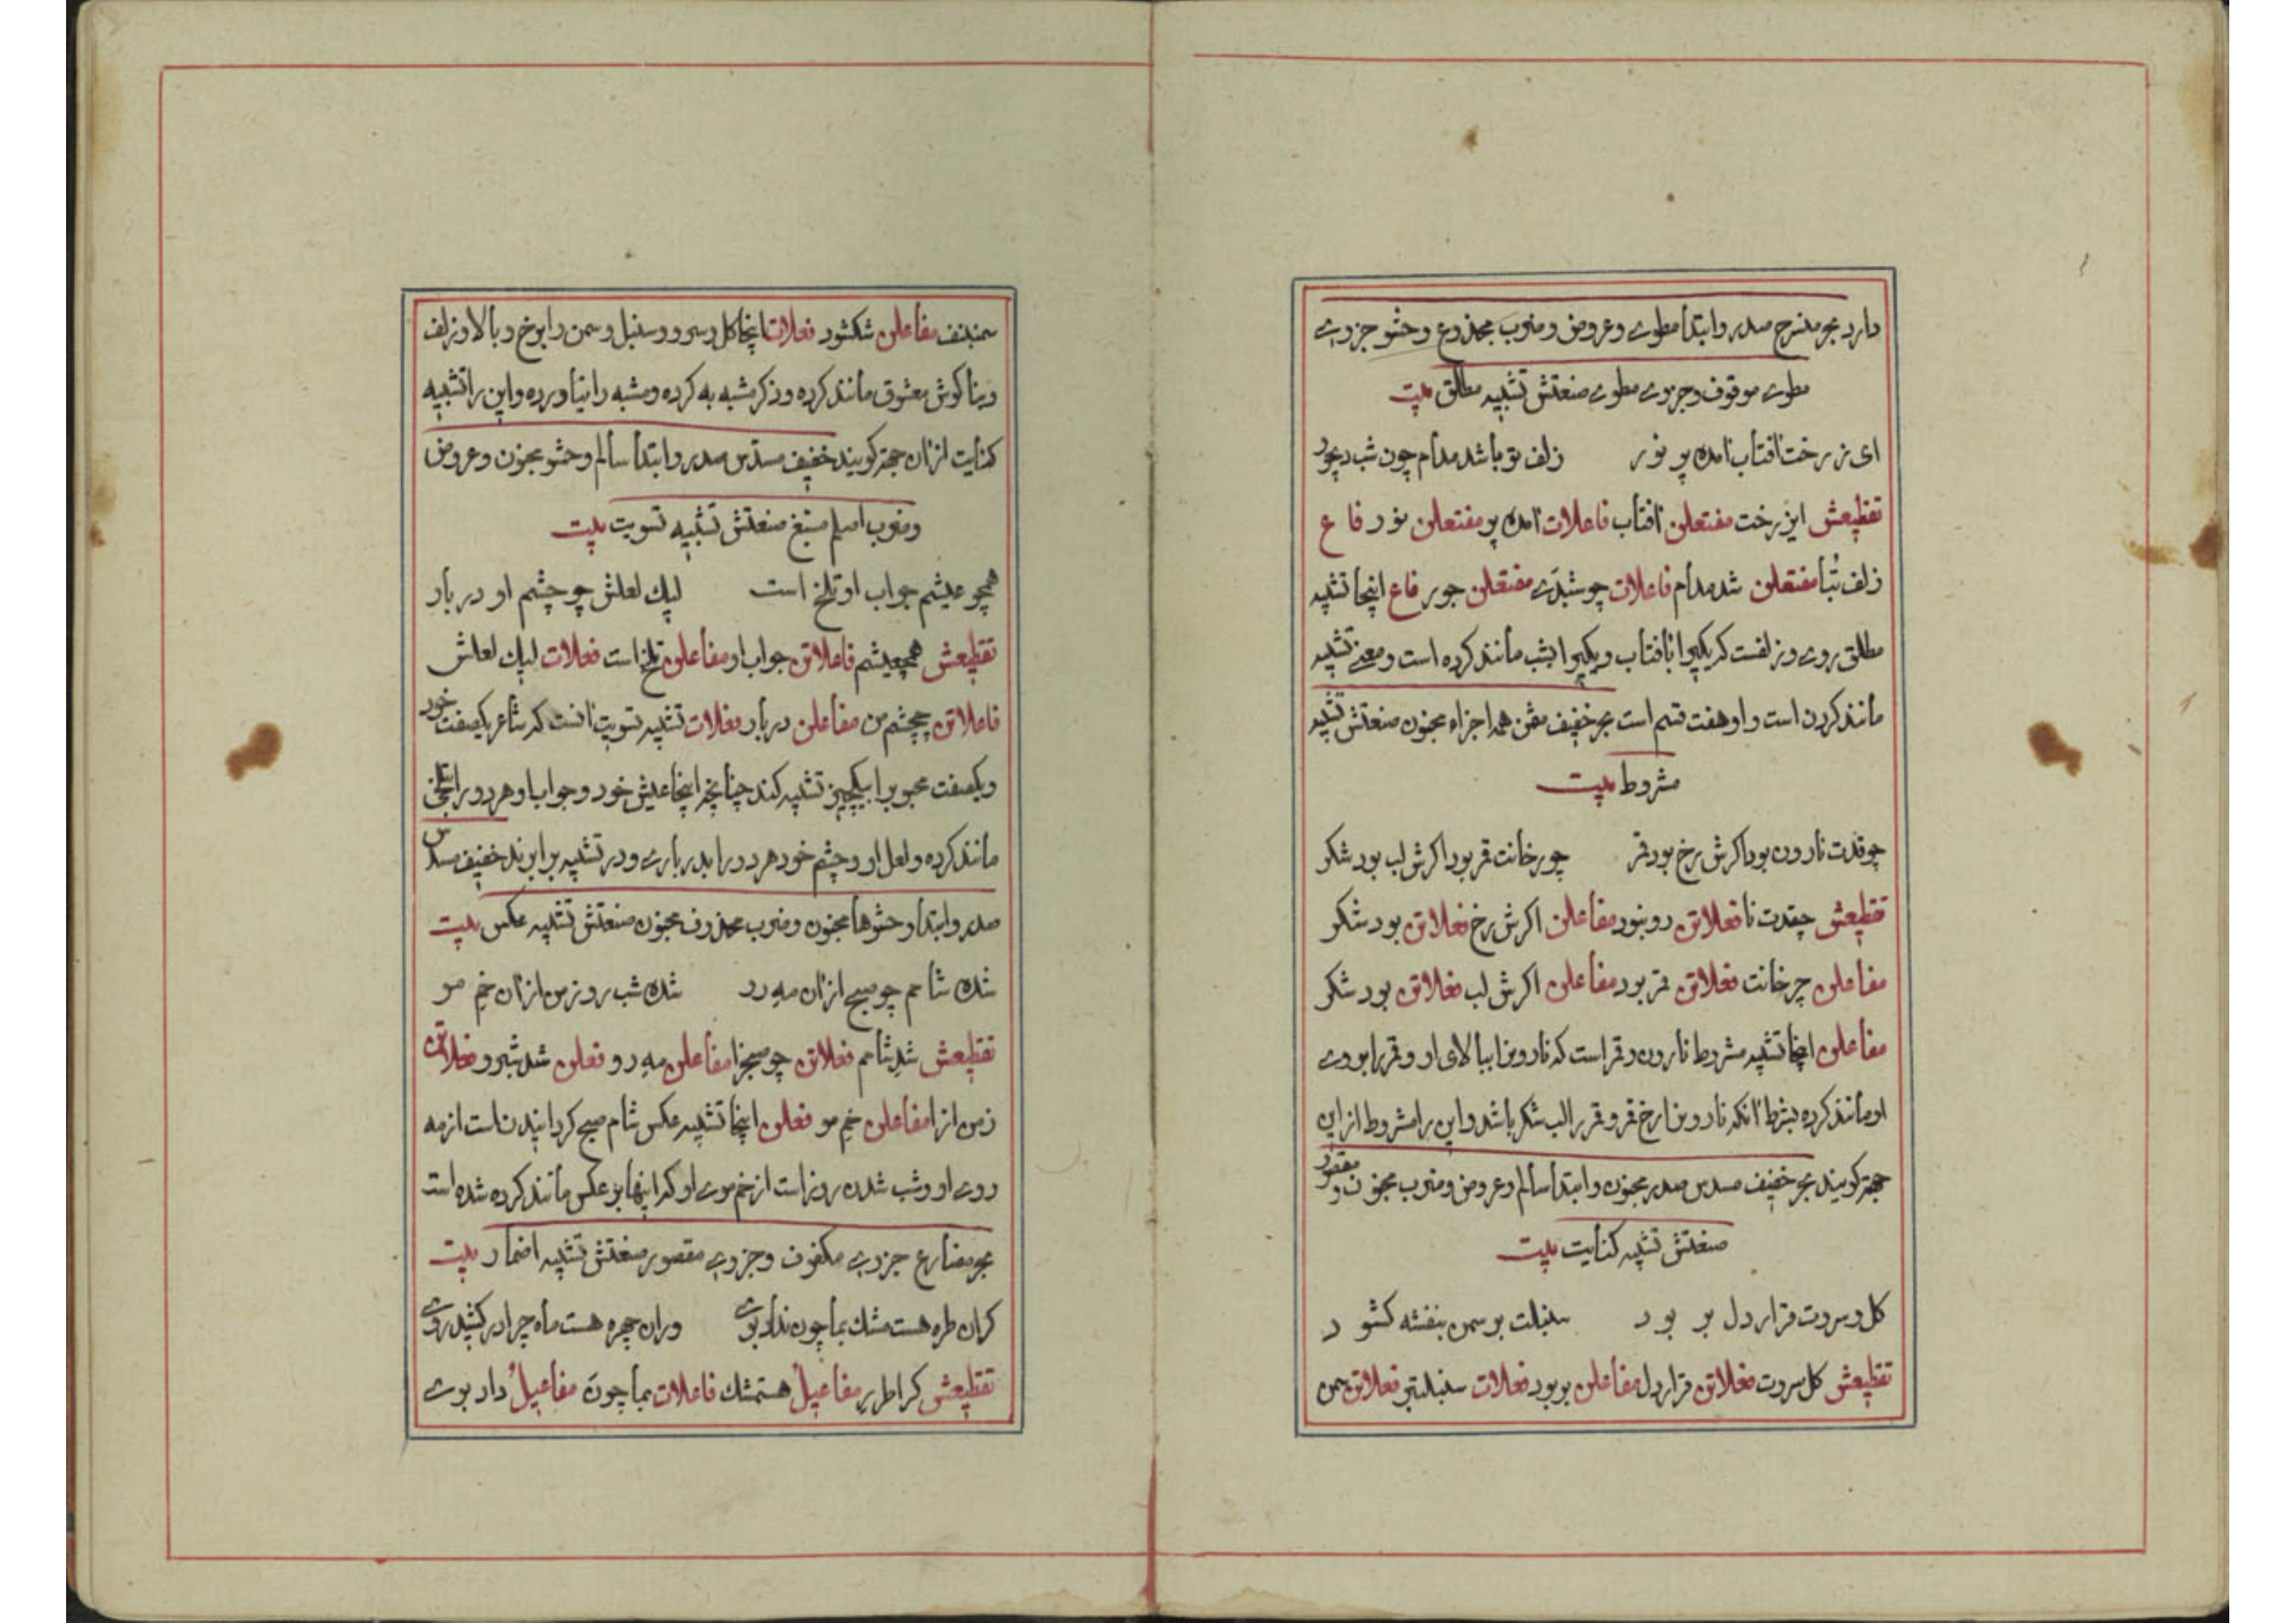 دارد بحر منسرح صدر و ابتدا مطوی و عروض و ضرب مجدوع و حشو جزوی
مطوی موقوف و جزوی مطوی صنعتش تشبیه مطلق بیت
ای ز رخت آفتاب آمده پر نور زلف تو باشد مدام چون شب دیجور
تقطیعش ایز رخت مفتعلن آفتاب فاعلات آمده پر مفتعلن نور فاع
زلف تبا مفتعلن شد مدام فاعلات چو شبدی مفتعلن جور فاع اینجا تشبیه
مطلق روی و زلفست که یکیرا بآفتاب و یکیرا بشب مانند کرده است و معنی تشبیه
مانند کردن است و او هفت قسم است بحر خفیف مثمن همه اجزاء مخبون صنعتش تشبیه
مشروط بیت
چو قدت نارون بود اگرش رخ بود قمر چو رخانت قمر بود اگرش لب بود شکر
تقطیعش چقدت نا فعلاتن رو بنود مفاعلن اگرش رخ فعلاتن بود شکر
مفاعلن چرخانت فعلاتن قمر بود مفاعلن اگرش لب فعلاتن بود شکر
مفاعلن اینجا تشبیه مشروط نارون و قمر است که نارونرا ببالای او و قمر را بروی
او مانند کرده بشرط آنکه نارونرا رخ قمر و قمر را لب شکر باشد و این را مشروط از این
جهة گویند بحر خفیف مسدس صدر مخبون و ابتدا سالم و عروض و ضرب مخبون و مقصور
صنعتش تشبیه کنایت بیت
گل و سروت قرار دل بر بود سنبلت بر سمن بنفشه گشود
تقطیعش گل سروت فعلاتن قرار دل مفاعلن بربود فعلات سنبلتبر فعلاتن چمن
سمنبنف مفاعلن شگشود فعلات اینجا گل و سرو و سنبل و سمن را برخ و بالا و زلف
و بناگوش معشوق مانند کرده و ذکر مشبه به کرده و مشبه را نیاورده و این را تشبیه
کنایت از آن جهة گویند خفیف مسدس صدر و ابتدا سالم و حشو مخبون و عروض
و ضرب اصلم مسبغ صنعتش تشبیه تسویت بیت
همچو عیشم جواب او تلخ است لیک لعلش چو چشم او دربار
تقطیعش همچعیشم فاعلاتن جواب او مفاعلن تلخ است فعلات لیک لعلش
فاعلاتن چچشم من مفاعلن دربار مفعلات تشبیه تسویت آنست که شاعر یکصفت خود
و یکصفت محبوبرا بیکچیز تشبیه کند چنانچه اینجا عیش خود و جواب او هر دو را بتلخی
مانند کرده و لعل او و چشم خود هر دو را بدرباری و در تشبیه برابرند خفیف مسدس
صدر و ابتدا و حشوها مخبون و ضرب محذوف مخبون صنعتش تشبیه عکس بیت
شده شامم چو صبح از آن مه رو شده شب روز من از آن خم مو
تقطیعش شد شامم فعلاتن چو صبحزا مفاعلن مه رو فعلن شد شبرو فعلاتن
زمن از ا مفاعلن خم مو فعلن اینجا تشبیه عکس شام صبح گردانیدن است از مه
روی او و شب شدن روز است از خم موی او که اینها بر عکس مانند کرده شده است
بحر مضارع جزوی مکفوف و جزوی مقصور صنعتش تشبیه اضمار بیت
گر آن طره هست مشک بما چون نداد بوی ور آن چهره هست ماه چرا در کشید روی
تقطیعش گراطرر مفاعیل هستمشک فاعلات بما چون مفاعیل داد بوی